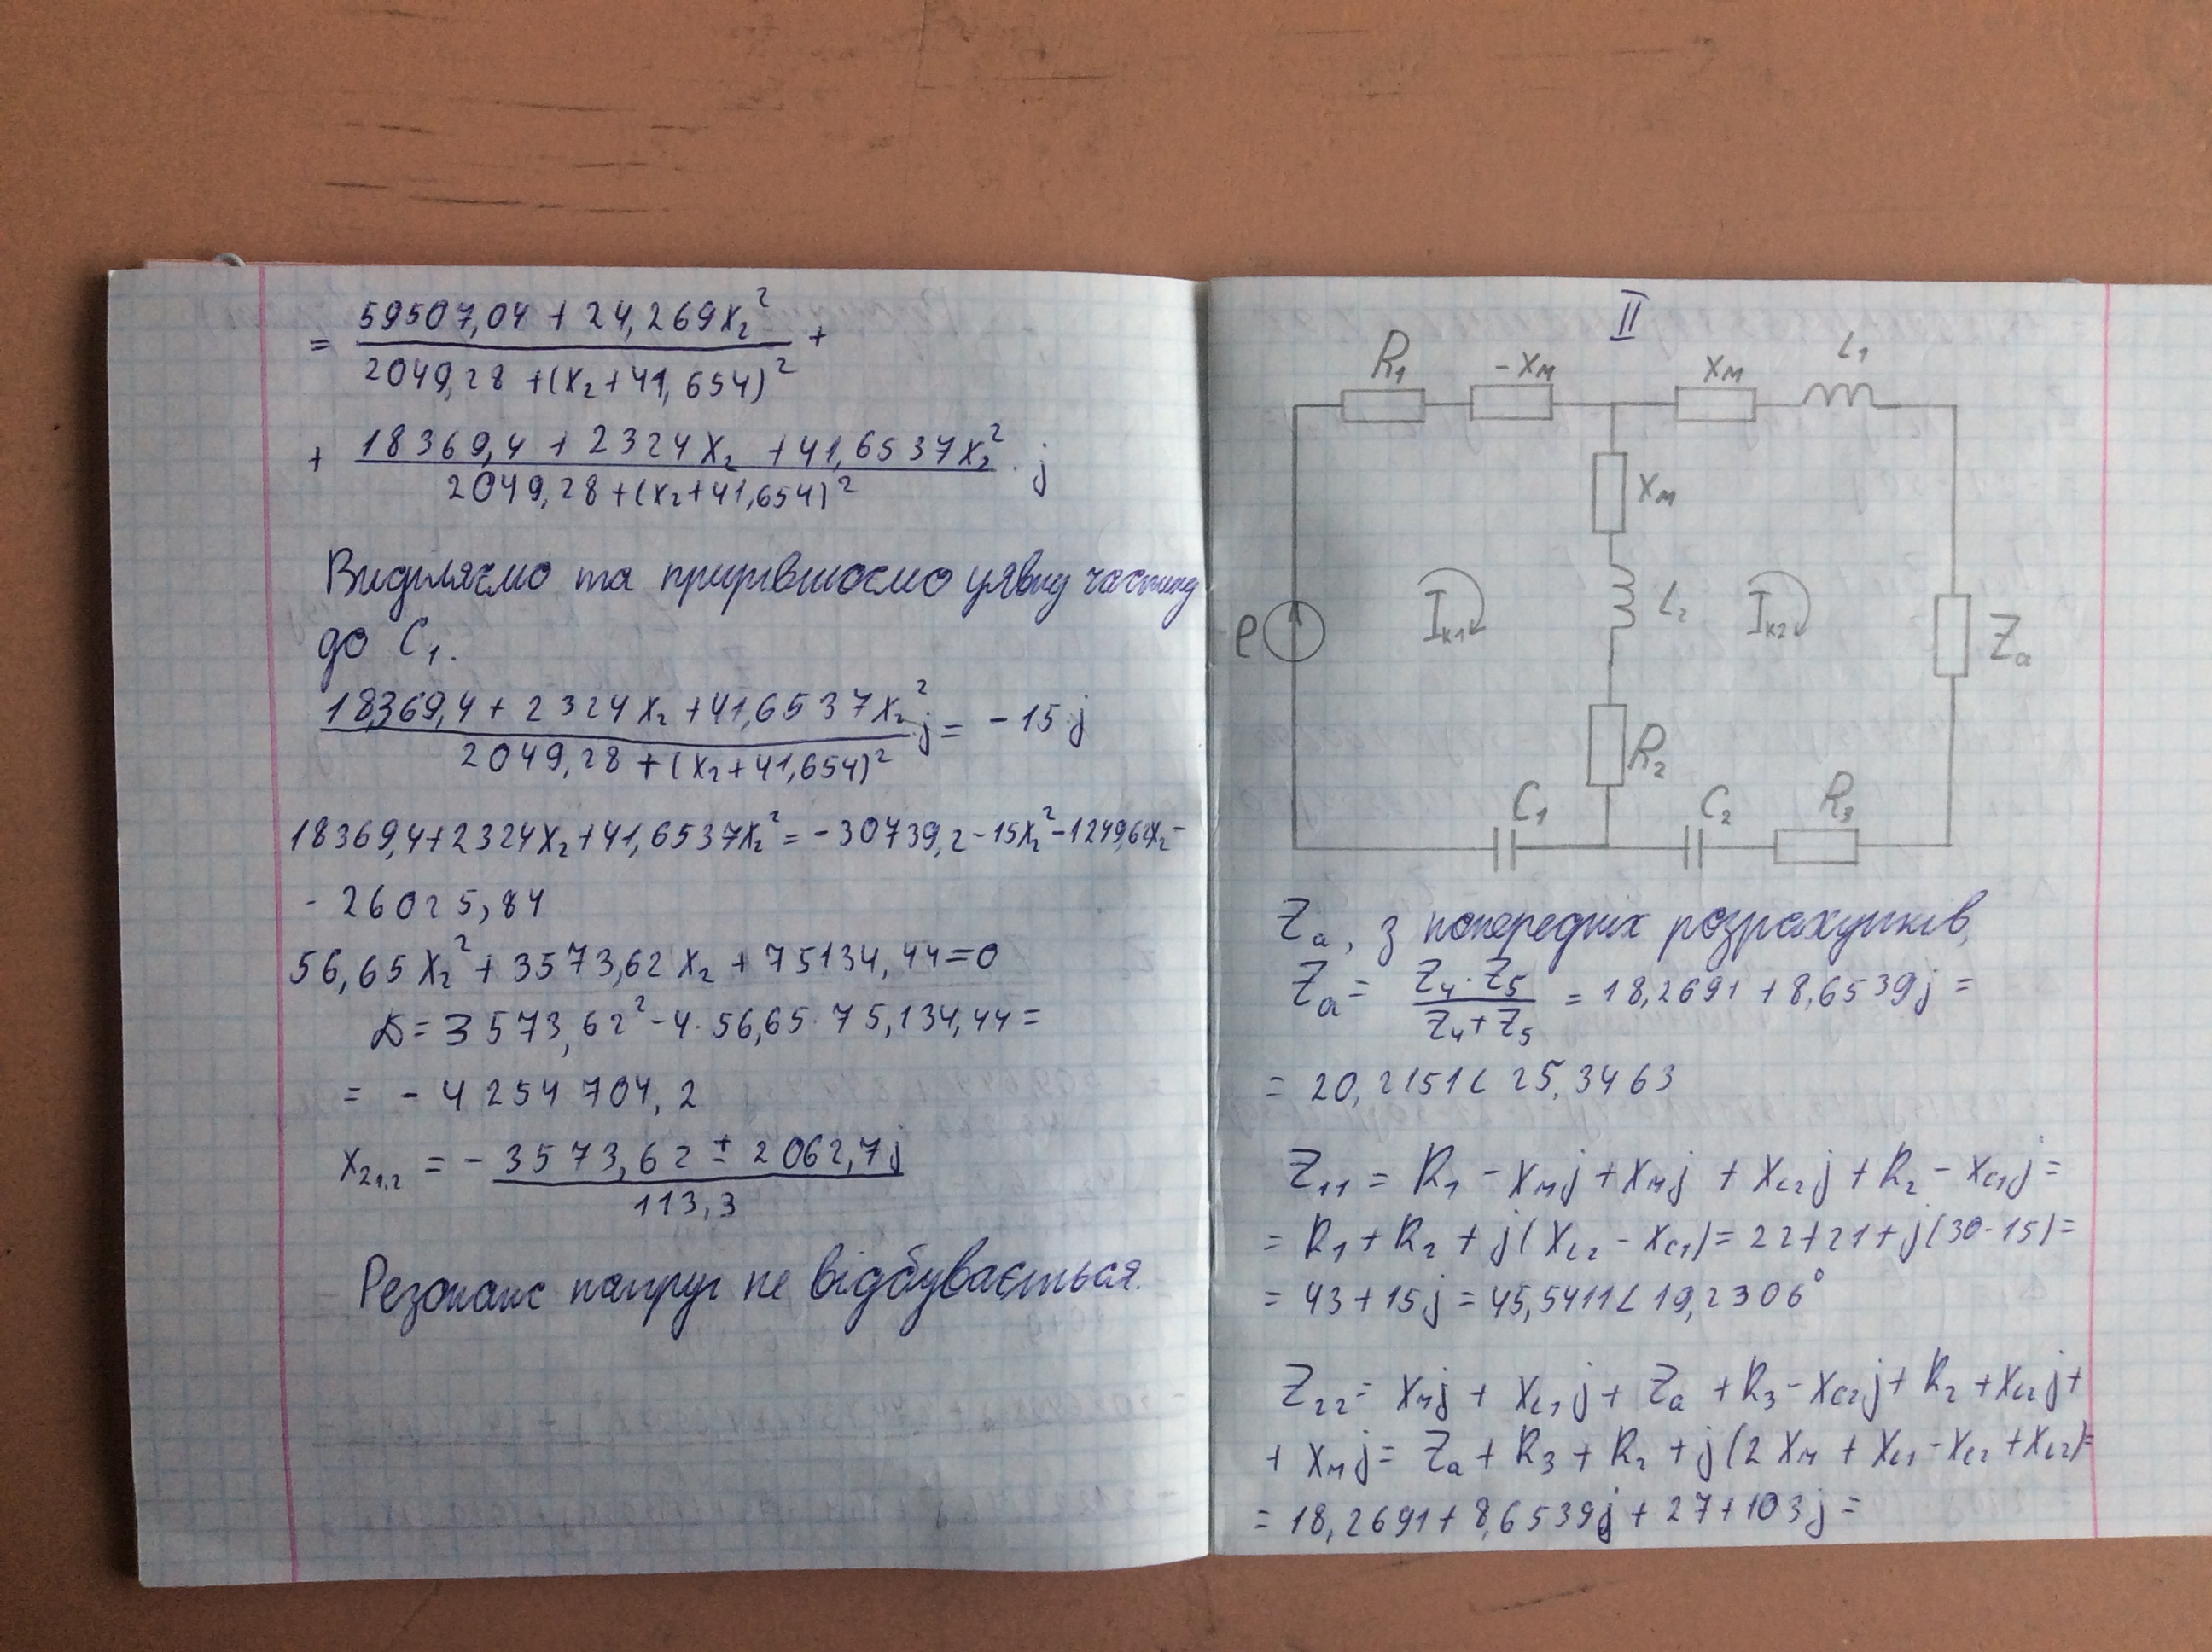 = (59507,04 + 24,269x₂²) / (2049,28 + (x₂ + 41,654)²) +
+ (18369,4 + 2324x₂ + 41,6537x₂²) / (2049,28 + (x₂+41,654)²) · j
Виділяємо та прирівнюємо уявну частину
до C₁.
(18369,4 + 2324x₂ + 41,6537x₂²) / (2049,28 + (x₂+41,654)²) j = -15j
18369,4+2324x₂+41,6537x₂² = -30739,2-15x₂²-1249,62x₂-
- 26025,84
56,65x₂² + 3573,62x₂ + 75134,44=0
D = 3573,62² - 4·56,65·75,134,44 =
= - 4254704,2
x₂₁,₂ = - (3573,62 ± 2062,7j) / 113,3
Резонанс напруг не відбувається.
II
R₁ -Xм Xм L₁
Xм
e Iк1 L₂ Iк2 Zа
R₂
C₁ C₂ R₃
Zа, з попередніх розрахунків,
Zа = (Z₄·Z₅) / (Z₄+Z₅) = 18,2691 + 8,6539j =
= 20,2151∠25,3463
Z₁₁ = R₁ - Xмj + Xмj + X_L2j + R₂ - X_C1j =
= R₁ + R₂ + j(X_L2 - X_C1) = 22+21+j(30-15) =
= 43+15j = 45,5411∠19,2306°
Z₂₂ = Xмj + X_L1j + Zа + R₃ - X_C2j + R₂ + X_L2j +
+ Xмj = Zа + R₃ + R₂ + j(2Xм + X_L1 - X_C2 + X_L2) =
= 18,2691 + 8,6539j + 27 + 103j =